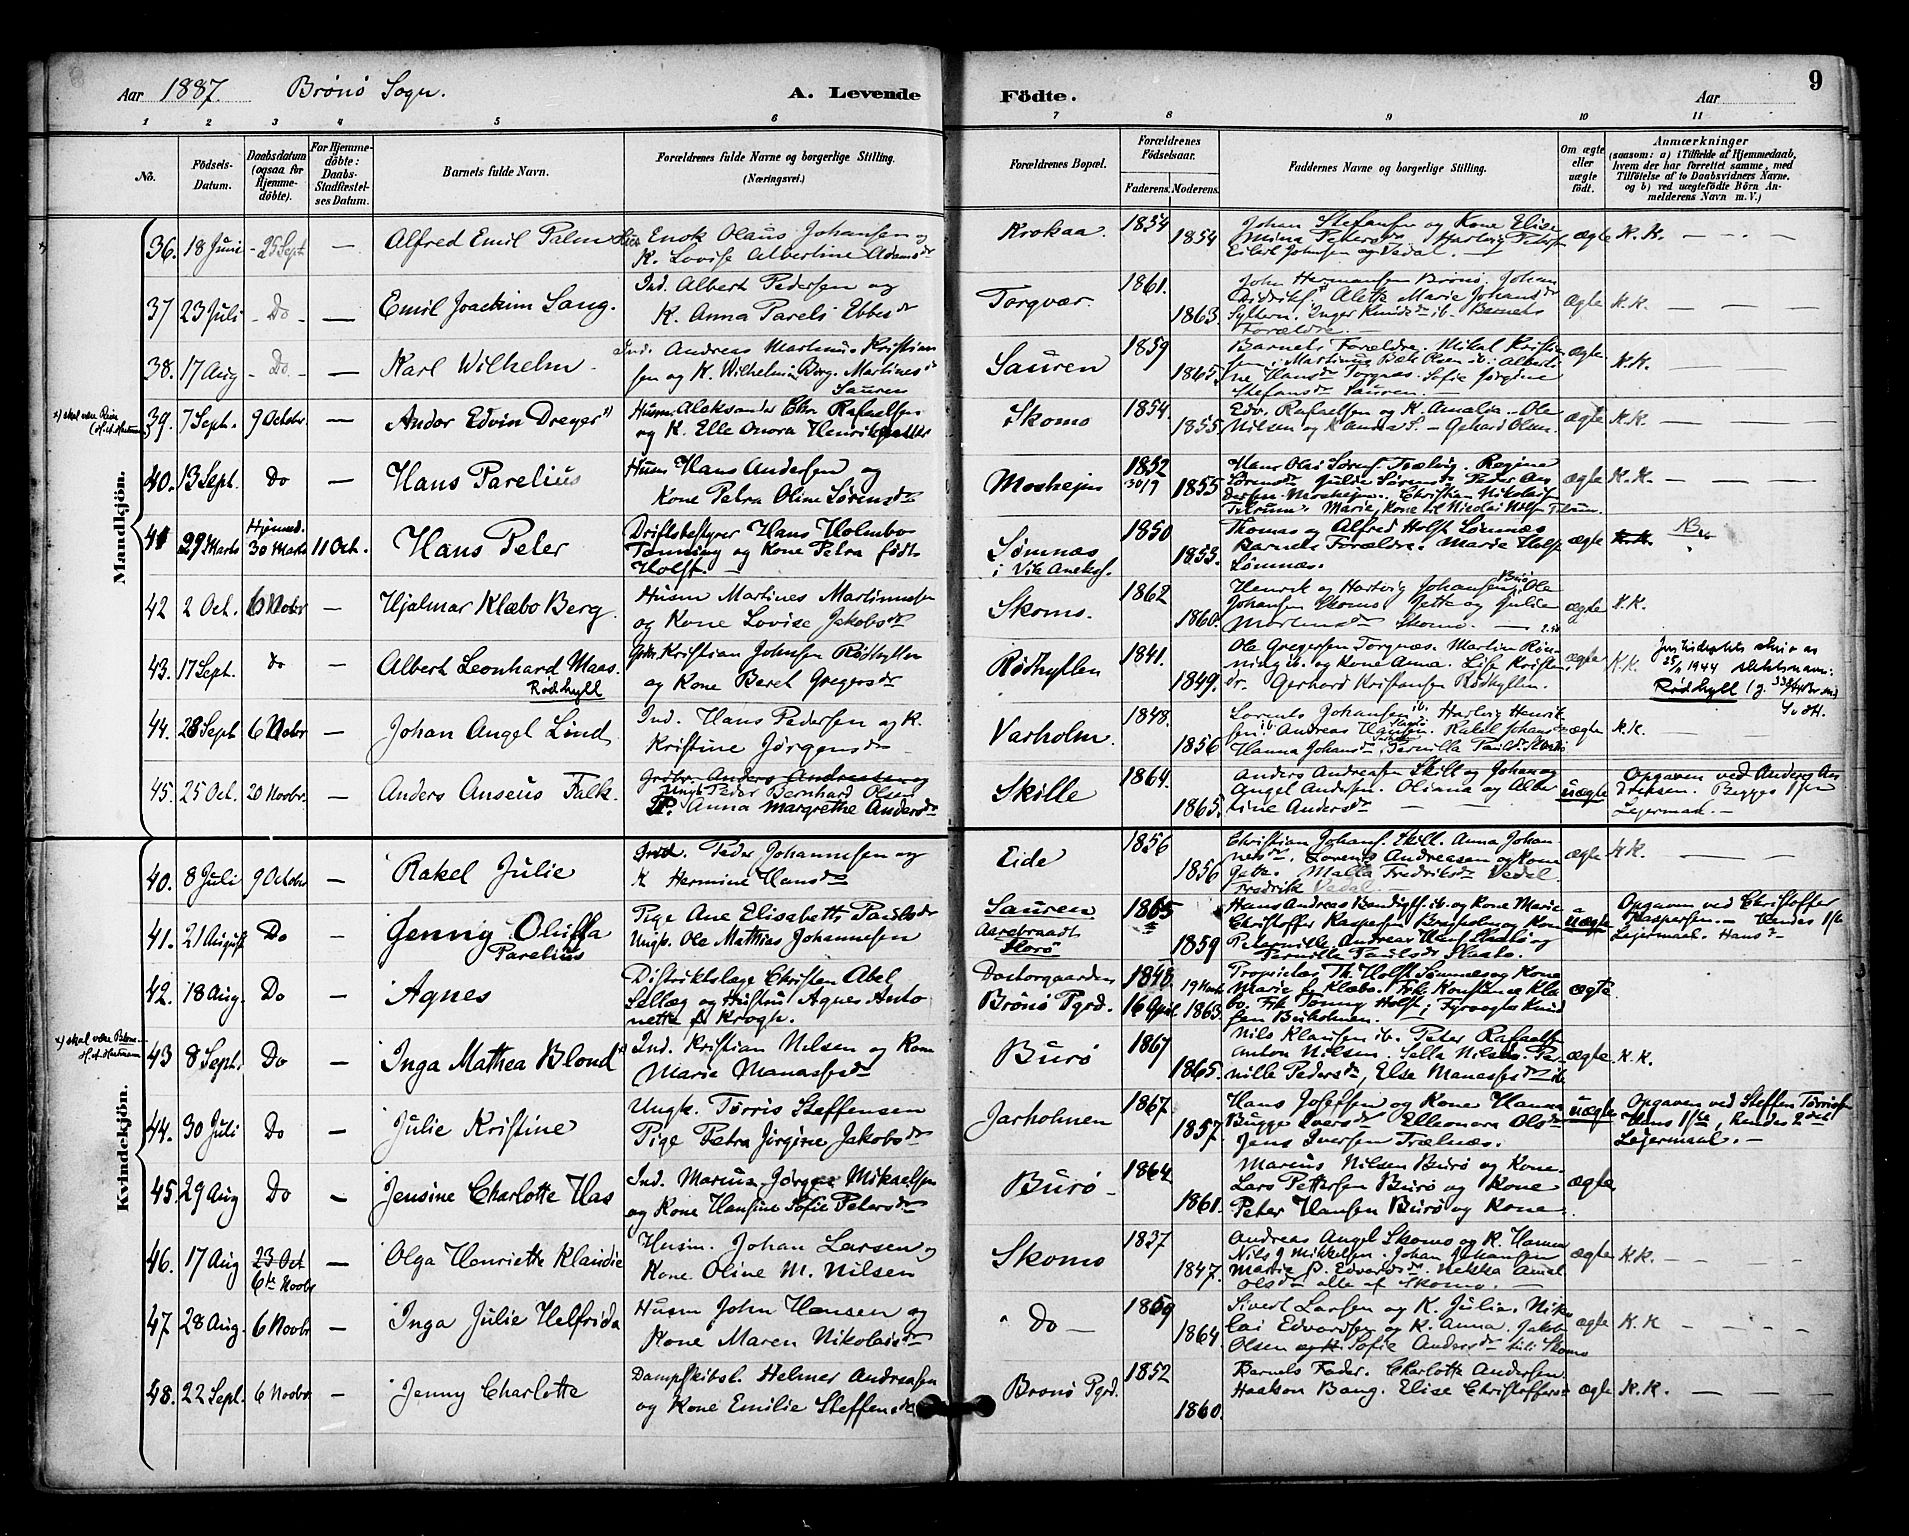 Aar 1887. Brønø Sogn. A. Levende Födte. Aar 9
1 2 3 4 5 6 7 8 9 10 11
No. Födsels-Datum. Daabsdatum (ogsaa for Hjemme-döbte). For Hjemme-döbte: Daabs-Stadfæstel-ses Datum. Barnets fulde Navn. Forældrenes fulde Navne og borgerlige Stilling. (Næringsvei.) Forældrenes Bopæl. Forældrenes Födselsaar. Faderens. Moderens. Faddernes Navne og borgerlige Stilling. Om ægte eller uægte födt. Anmærkninger (saasom: a) i Tilfælde af Hjemmedaab, hvem der har forrettet samme, med Tilföielse af to Daabsvidners Navne, og b) ved uægtefödte Börn An-melderens Navn m. V.)
Mandkjön.
36. 18 Juni 25 Sept — Alfred Emil Palm
Enok Olaus Johansen og
K. Lovise Albertine Adamsdr
Krokaa 1854 1854
Johan Stefansen og Kone Elise
Mina Petersdr Hartvig Petersen
Eilert Johnsen og Vedal. —
ægte K.K. — — —
37 23 Juli Do — Emil Joachim Lang.
Ind. Albert Pedersen og
K. Anna Parels Ebbesdr
Torgvær. 1861. 1863.
John Hermansen Brønø. Johan
Didriks. Alette Marie Johansdr
Sylten. Inger Knudsdr ib. Barnets
Forældre. —
ægte K.K. — — —
38. 17 Aug Do — Karl Wilhelm
Ind. Andreas Martinus Kristian
sen og K. Wilhelmine Berg. Martinesdr
Sauren
Sauren 1859 1865
Barnets Forældre. Mikal Kristian
sen, Martinus Bæk Olsen ib.
ne Hansdr Torgnæs. Sofie Jørgine
Stefansdr Sauren. —
ægte K.K. — —
x) skal være Reier
(H. A. Martinsen)
39. 7 Sept. 9 Octobr. — Andor Edvin Dreyer x)
Husm. Aleksander Chr Rafaelsen
og K. Elle Onora Henriksdatter
Skomo 1854. 1855.
Edv. Rafaelsen og K. Amalia. — Ole
Nilsen og K Anna S. — Gerhard Olsen.
ægte K.K. — — —
40. 13 Sept. Do — Hans Parelius
Husm Hans Andersen og
Kone Petra Oline Sørensdr
Mosheim 1852 30/9 1855
Hans Olai Sørens. Trælvig. Regine
Sørensdr Julie Sørensdr Peder An
dersen Mosheim. Christian Nikolaisen
Tilrum. Marie, Kone til Nicolai Nilsen Tilrum.
ægte K.K. — — —
41 29 Marts Hjemmed. 30 Marts 11 Oct. Hans Peter
Driftsbestyrer Hans Holmbo
Tønning og Kone Petra født
Holst. —
Sømnæs
i Vik Aneks. 1850 1853.
Thomas og Alfred Holst Sømnæs
Barnets Forældre. Marie Holst
Sømnæs.
ægte K.K. — NB.
42 2 Oct. 6 Novbr — Hjalmar Klæbo Berg.
Husm Martines Martinussen
og Kone Lovise Jakobsdr
Skomo. 1862 1860.
Henrik og Hartvig Johansen, Burø Ole
Johansen Skomo Jette og Julie
Martinsdr Skomo. —
ægte K.K.
43. 17 Sept. Do — Albert Leonhard Maas.
Rødhyll
Kristian Johnsen Rødhyllen
og Kone Beret Gregersdr
Rødhyllen 1841. 1849.
Ole Gregersen Torgnæs. Martin Røn
ning ib. og Kone Anna. Lise Kristen
dr. Gerhard Kristiansen Rødhyllen.
ægte K.K.
25/1 1944 slektsnavn:
Rødhyll
44. 28 Sept 6 Novbr — Johan Angel Lind
Ind. Hans Pedersen og K.
Kristine Jørgensdr
Varholm. 1848. 1856
Lorents Johansen ib. Hartvig Henrik
sen ib. Andreas Hansen. Rakel Johansdr
Hanna Johansdr
ægte K.K. —
45. 25 Oct. 20 Novbr. — Anders Anseus Falk.
Grdbr. Anders Andreasen og
Ungk Peder Bernhard Olsen
P. Anna Margrethe Andersdr
Skille 1864 1865.
Anders Andreasen Skille, Johan og
Angel Andersen. Oliana og Alber
tine Andersdr — —
uægte
Opgaven ved Anders An
dreasen. Begges 1ste
Lejermaal. —
Kvindekjön.
40. 8 Juli 9 Octobr — Rakel Julie
Ind. Peder Johannesen og
K Hermine Hansdr
Eide 1856 1856
Christian Johans. Skill. Anna Johan
nesdr. Lorents Andreasen og Kone
Malla Fredriksdr Vedal.
Fredrik Vedal. —
ægte K.K. — — —
41. 21 August Do — Jenny Oluffa
Parelius
Pige Ane Elisabeth Paulsdr
Ungk. Ole Mathias Johannesen
Sauren
Aarstraadt
Horø 1865 1859
Hans Andreas Bendigts. ib. og Kone Marie
Christoffer Kaspersen og Kone
Peternille, Andreas Hans. Skaalø og
Pernille Paulsdr Skaalø.
uægte
Opgaven ved Christoffer
Kaspersen. — Hendes 1ste
Lejermaal. Hans dr
42. 18 Aug. Do — Agnes
Distriktslæge Christen Abel
Sellæg og Hustru Agnes Anto
nette f Krogh.
Dostorgaarden
Brønø Pgrd. 1848. 19 Novb 16 April 1863
Proprietær Th. Holst Sømnæs og Kone
Marie f. Klæbo. Frk Konstance Klæ
bo, Frk Tonny Holst, Fyrvogter Knud
sen Buholmen.
ægte
x) skal være Blom
H. A. Martinsen
43 8 Sept. Do — Inga Mathea Blond x)
Ind. Kristian Nilsen og Kone
Marie Manassesdr
Burø 1867 1865.
Nils Klausen ib. Peter Rafaelsen
Anton Nilsen. Sella Nilsdr. Per
nille Pedersdr, Else Manassesdr ib.
ægte K.K.
44. 30 Juli Do — Julie Kristine
Ungk. Tørris Steffensen
Pige Petra Jørgine Jakobsdr
Jarholmen 1867 1857.
Hans Josefsen og Kone Hanna
Bugge Iversdr Elleonora Olsdr
Jens Iversen Trælnæs.
uægte
Opgaven ved Steffen Tørrissen
Hans 1ste, hendes 2det
Lejermaal. —
45. 29 Aug Do — Jensine Charlotte Has
Ind. Marius Jørgen Mikaelsen
og Kone Hansine Sofie Petersdr
Burø 1864 1861.
Marius Nilsen Burø og Kone.
Lars Pettersen Burø og Kone
Peter Hansen Burø og Kone
ægte
46. 17 Aug 23 Oct 6te Novbr — Olga Henriette Klaudie
Husm. Johan Larsen og
Kone Oline M. Nilsen
Skomo 1837 1847.
Andreas Angel Skomo og K. Hanna
Nils J Mikkelsen. Johan Johansen
Marie P. Edvardsdr. Nekka Amal.
Olsdr alle af Skomo. —
ægte K.K. — — —
47. 28 Aug. 6 Novbr — Inga Julie Helfrida
Husm John Hansen og
Kone Maren Nikolaisdr
Do — 1859 1864
Sivert Larsen og K. Julia. Niko
lai Edvardsen og K. Anna. Jakob
Olsen og K Sofie Andersdr Skomo
ægte K.K — — —
48. 22 Sept. 6 Novbr — Jenny Charlotte
Dampskibsl. Helmer Andreasen
og Kone Emilie Steffensdr
Brønø Pgrd. 1852 1860.
Barnets Fader. Charlotte Andersen
Haakon Bang. Elise Christoffersdr
ægte K.K. — — —